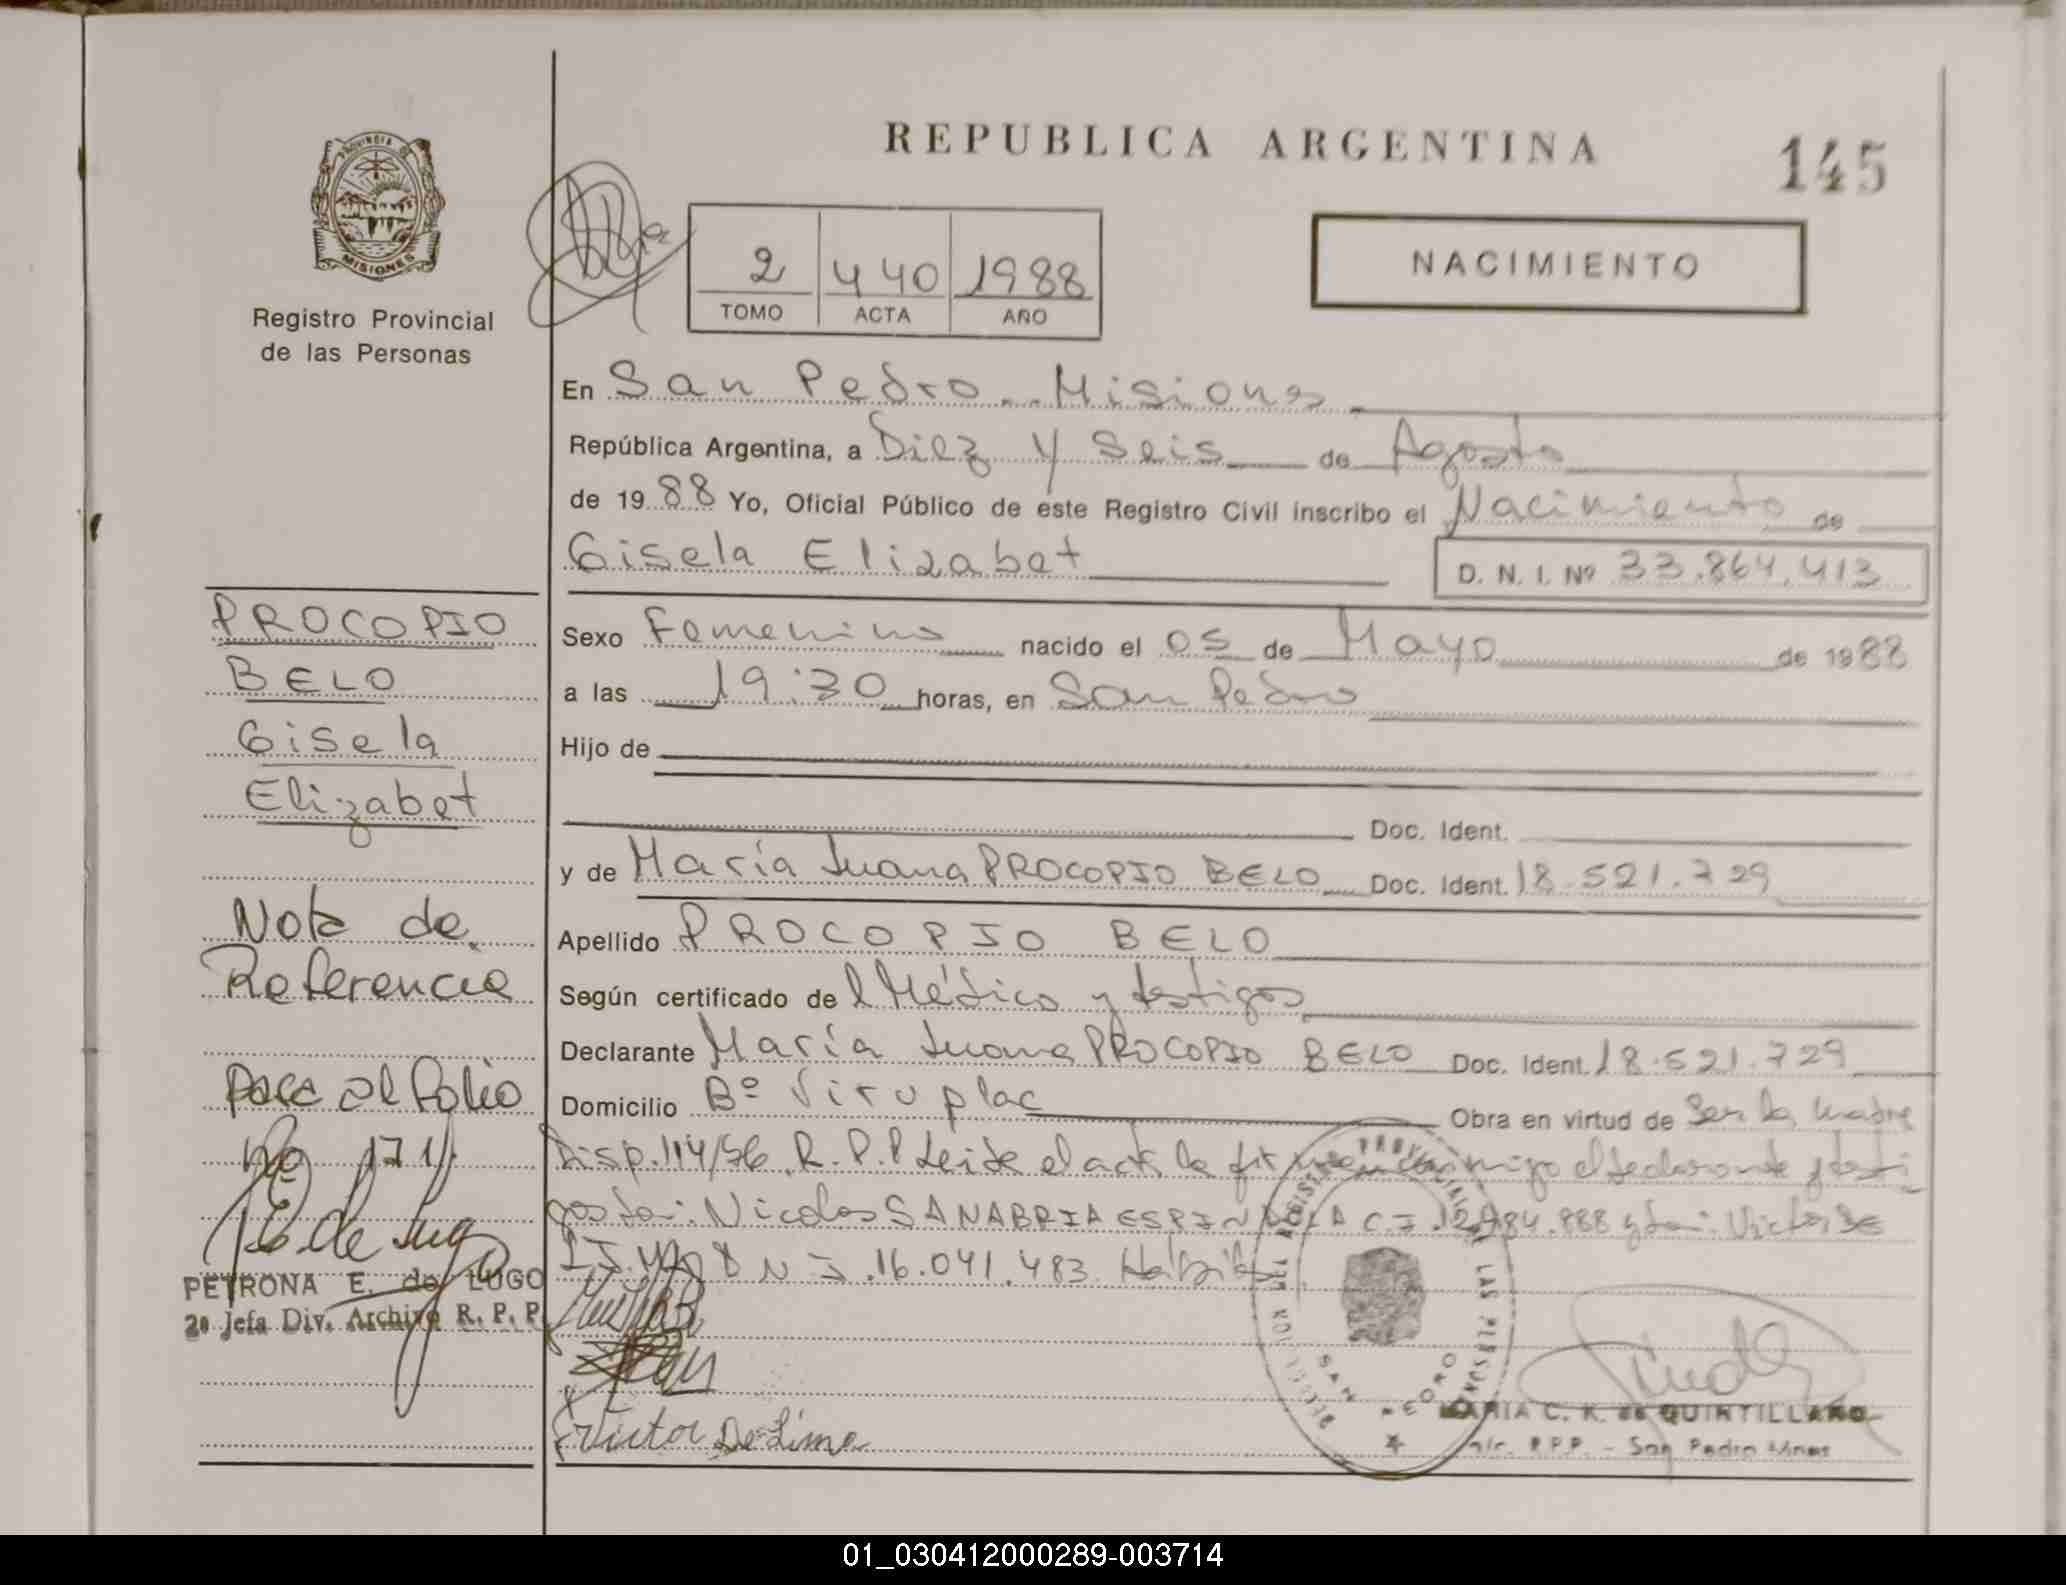 REPUBLICA ARGENTINA
145
PROVINCIA DE
MISIONES
Registro Provincial
de las Personas
2 440 1988
TOMO ACTA AÑO
NACIMIENTO
En San Pedro Misiones
República Argentina, a Diez y Seis de Agosto
de 1988 Yo, Oficial Público de este Registro Civil inscribo el Nacimiento de
Gisela Elizabet
D. N. I. Nº 33.864.413
Sexo Femenino nacido el 05 de Mayo de 1988
a las 19:30 horas, en San Pedro
Hijo de
Doc. Ident.
y de María Juana PROCOPIO BELO Doc. Ident. 18.521.729
Apellido PROCOPIO BELO
Según certificado del Médico y testigos
Declarante María Juana PROCOPIO BELO Doc. Ident. 18.521.729
Domicilio Bº Viru plac Obra en virtud de Ser la madre
Disp. 114/56 R. P. P Leida el acta la firman conmigo el declarante y testi
gos Nicolas SANABRIA ESPINDOLA C.I. Victor DE
LIMA D N I. 16.041.483
Victor De Lima
PROCOPIO
BELO
Gisela
Elizabet
Nota de
Referencia
Pasa al folio
No 171
PETRONA E. de LUGO
2ª Jefa Div. Archivo R. P. P.
SAN PEDRO
MARIA C. K. de QUINTILLANO
R.P.P. - San Pedro Mnes
01_030412000289-003714